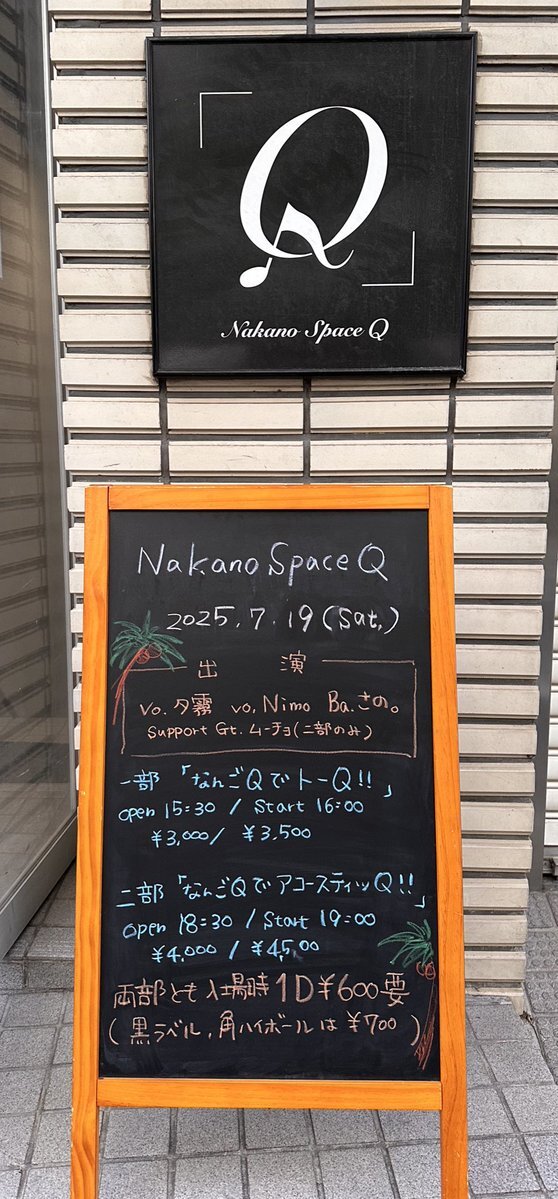 Q
Nakano Space Q
Nakano Space Q
2025.7.19(Sat.)
出 演
Vo.夕霧 vo.Nimo Ba.さの。
Support Gt.ムーチョ(二部のみ)
一部「なんごQでトーQ!!」
open 15:30 / Start 16:00
¥3,000/ ¥3,500
二部「なんごQでアコースティッQ!!」
open 18:30 / Start 19:00
¥4,000 / ¥45,00
両部とも入場時1D¥600要
(黒ラベル,角ハイボールは¥700)